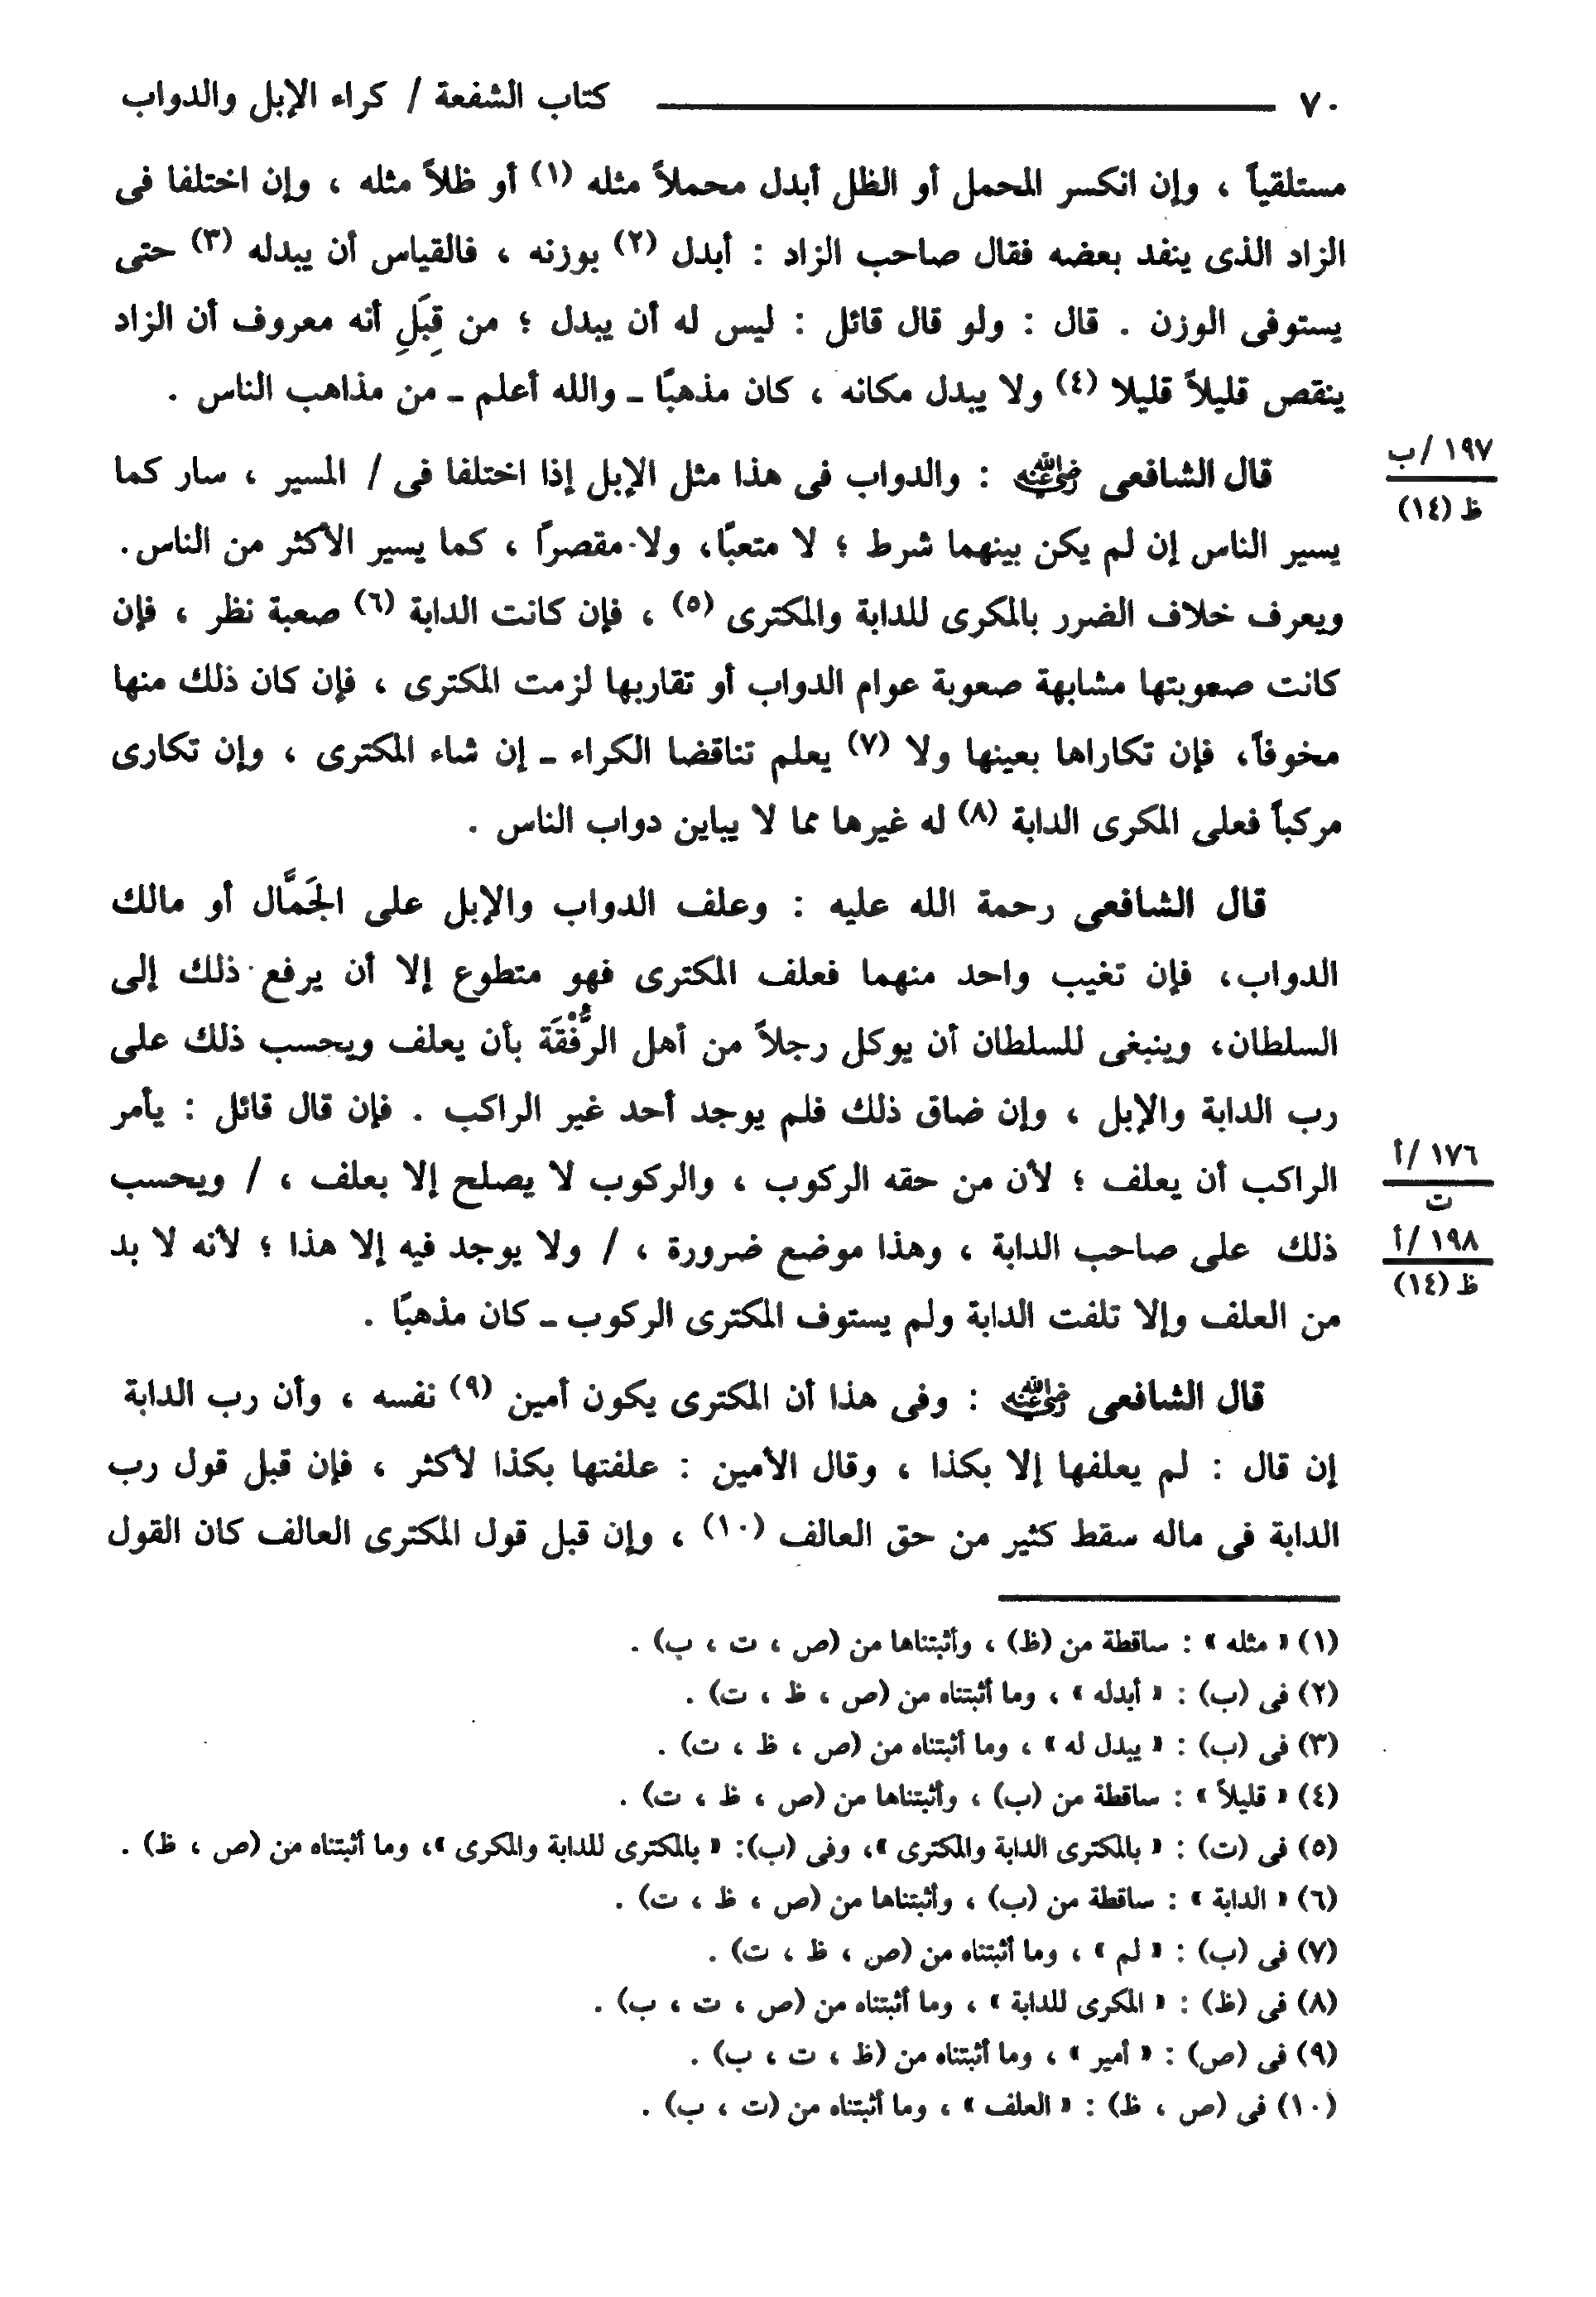 ٧٠ كتاب الشفعة / كراء الإبل والدواب
مستلقياً ، وإن انكسر المحمل أو الظل أبدل محملاً مثله (١) أو ظلاً مثله ، وإن اختلفا فى
الزاد الذى ينفد بعضه فقال صاحب الزاد : أبدل (٢) بوزنه ، فالقياس أن يبدله (٣) حتى
يستوفى الوزن . قال : ولو قال قائل : ليس له أن يبدل ؛ من قِبَلِ أنه معروف أن الزاد
ينقص قليلاً قليلا (٤) ولا يبدل مكانه ، كان مذهبًا ـ والله أعلم ـ من مذاهب الناس .
١٩٧ /ب
ظ (١٤)
قال الشافعى رضي الله عنه : والدواب فى هذا مثل الإبل إذا اختلفا فى / المسير ، سار كما
يسير الناس إن لم يكن بينهما شرط ؛ لا متعبًا، ولا مقصراً ، كما يسير الأكثر من الناس.
ويعرف خلاف الضرر بالمكرى للدابة والمكترى (٥) ، فإن كانت الدابة (٦) صعبة نظر ، فإن
كانت صعوبتها مشابهة صعوبة عوام الدواب أو تقاربها لزمت المكترى ، فإن كان ذلك منها
مخوفاً، فإن تكاراها بعينها ولا (٧) يعلم تناقضا الكراء ـ إن شاء المكترى ، وإن تكارى
مركباً فعلى المكرى الدابة (٨) له غيرها مما لا يباين دواب الناس .
قال الشافعى رحمة الله عليه : وعلف الدواب والإبل على الجَمَّال أو مالك
الدواب، فإن تغيب واحد منهما فعلف المكترى فهو متطوع إلا أن يرفع ذلك إلى
السلطان، وينبغى للسلطان أن يوكل رجلاً من أهل الرُّفْقَة بأن يعلف ويحسب ذلك على
رب الدابة والإبل ، وإن ضاق ذلك فلم يوجد أحد غير الراكب . فإن قال قائل : يأمر
١٧٦ /أ
ت
الراكب أن يعلف ؛ لأن من حقه الركوب ، والركوب لا يصلح إلا بعلف ، / ويحسب
١٩٨ /أ
ظ (١٤)
ذلك على صاحب الدابة ، وهذا موضع ضرورة ، / ولا يوجد فيه إلا هذا ؛ لأنه لا بد
من العلف وإلا تلفت الدابة ولم يستوف المكترى الركوب ـ كان مذهبًا .
قال الشافعى رضي الله عنه : وفى هذا أن المكترى يكون أمين (٩) نفسه ، وأن رب الدابة
إن قال : لم يعلفها إلا بكذا ، وقال الأمين : علفتها بكذا لأكثر ، فإن قبل قول رب
الدابة فى ماله سقط كثير من حق العالف (١٠) ، وإن قبل قول المكترى العالف كان القول
(١) « مثله » : ساقطة من (ظ) ، وأثبتناها من (ص ، ت ، ب) .
(٢) فى (ب) : « أبدله » ، وما أثبتناه من (ص ، ظ ، ت) .
(٣) فى (ب) : « يبدل له » ، وما أثبتناه من (ص ، ظ ، ت) .
(٤) « قليلاً » : ساقطة من (ب) ، وأثبتناها من (ص ، ظ ، ت) .
(٥) فى (ت) : « بالمكترى الدابة والمكترى »، وفى (ب): « بالمكترى للدابة والمكرى »، وما أثبتناه من (ص ، ظ) .
(٦) « الدابة » : ساقطة من (ب) ، وأثبتناها من (ص ، ظ ، ت) .
(٧) فى (ب) : « لم » ، وما أثبتناه من (ص ، ظ ، ت) .
(٨) فى (ظ) : « المكرى للدابة » ، وما أثبتناه من (ص ، ت ، ب) .
(٩) فى (ص) : « أمير » ، وما أثبتناه من (ظ ، ت ، ب) .
(١٠) فى (ص ، ظ) : « العلف » ، وما أثبتناه من (ت ، ب) .